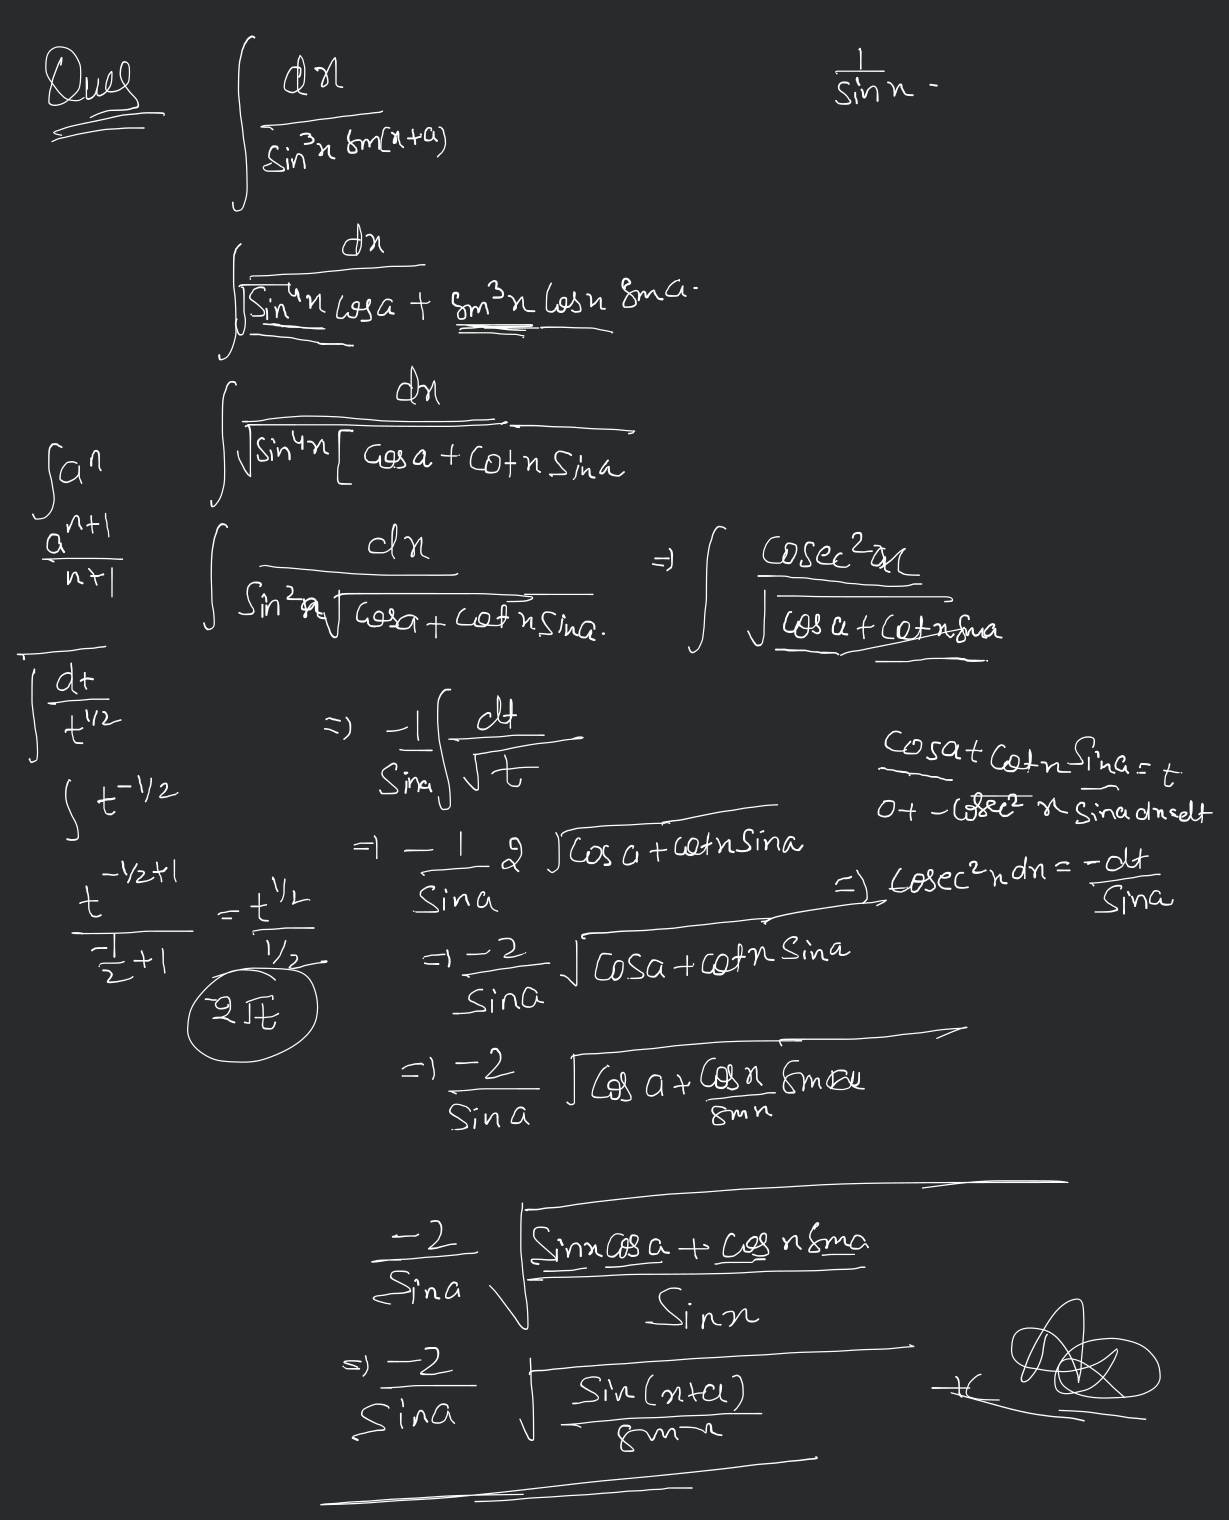 Ques ∫ dx / sin³x sin(x+a)
1/sin x -
∫ dx / √sin⁴x cos a + sin³x cos x sin a.
∫ dx / √sin⁴x [cos a + cot x sin a
∫ dx / sin²x √cos a + cot x sin a. ⇒ ∫ cosec²x / √cos a + cot x sin a
∫aⁿ
aⁿ⁺¹ / n+1
∫ dt / t^1/2
∫ t^-1/2
t^-1/2+1 / -1/2+1 = t^1/2 / 1/2
2√t
⇒ -1/sin a ∫ dt/√t
cos a + cot x sin a = t
0 + - cosec²x sin a dx = dt
⇒ cosec²x dx = -dt/sin a
⇒ - 1/sin a 2 √cos a + cot x sin a
⇒ -2/sin a √cos a + cot x sin a
⇒ -2/sin a √cos a + cos x/sin x sin a
-2/sin a √sin x cos a + cos x sin a / sin x
⇒ -2/sin a √sin(x+a)/sin x +c